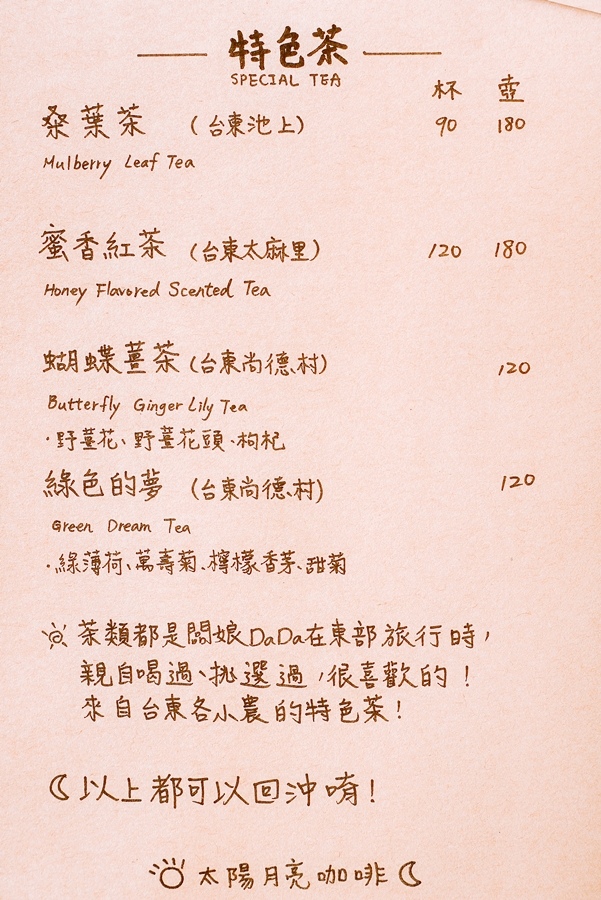 特色茶
SPECIAL TEA
杯 壺
桑葉茶 (台東池上) 90 180
Mulberry Leaf Tea
蜜香紅茶 (台東太麻里) 120 180
Honey Flavored Scented Tea
蝴蝶薑茶 (台東尚德村) 120
Butterfly Ginger Lily Tea
·野薑花、野薑花頭、枸杞
綠色的夢 (台東尚德村) 120
Green Dream Tea
·綠薄荷、萬壽菊、檸檬香茅、甜菊
茶類都是闆娘DaDa在東部旅行時,
親自喝過、挑選過,很喜歡的!
來自台東各小農的特色茶!
以上都可以回沖唷!
太陽月亮咖啡